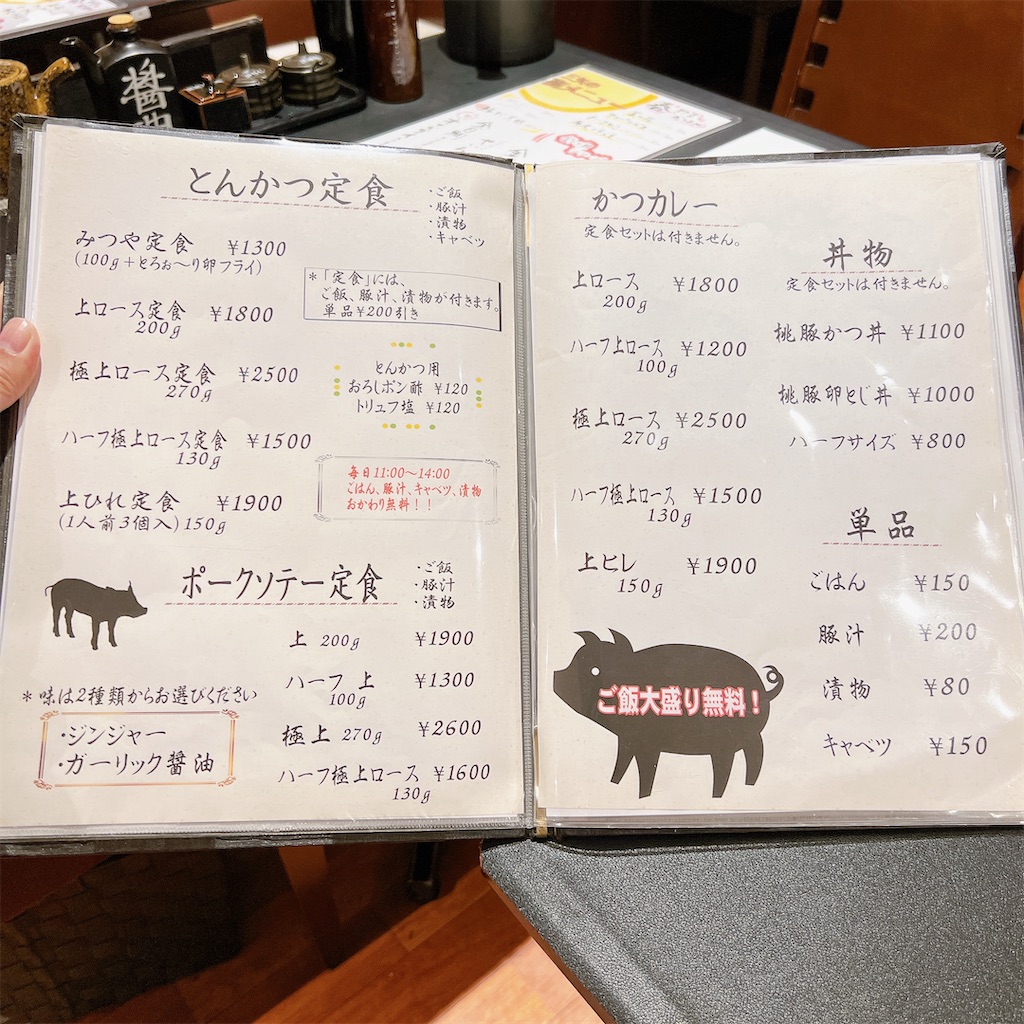 醤油
とんかつ定食
・ご飯
・豚汁
・漬物
・キャベツ
みつや定食 ¥1300
(100g+とろぉ〜り卵フライ)
*「定食」には、
ご飯、豚汁、漬物が付きます。
単品¥200引き
上ロース定食 ¥1800
200g
極上ロース定食 ¥2500
270g
とんかつ用
おろしポン酢 ¥120
トリュフ塩 ¥120
ハーフ極上ロース定食 ¥1500
130g
毎日11:00〜14:00
ごはん、豚汁、キャベツ、漬物
おかわり無料！！
上ひれ定食 ¥1900
(1人前3個入)150g
ポークソテー定食
・ご飯
・豚汁
・漬物
上 200g ¥1900
ハーフ上 ¥1300
100g
極上 270g ¥2600
ハーフ極上ロース ¥1600
130g
*味は2種類からお選びください
・ジンジャー
・ガーリック醤油
かつカレー
定食セットは付きません。
上ロース ¥1800
200g
ハーフ上ロース ¥1200
100g
極上ロース ¥2500
270g
ハーフ極上ロース ¥1500
130g
上ヒレ ¥1900
150g
丼物
定食セットは付きません。
桃豚かつ丼 ¥1100
桃豚卵とじ丼 ¥1000
ハーフサイズ ¥800
単品
ごはん ¥150
豚汁 ¥200
漬物 ¥80
キャベツ ¥150
ご飯大盛り無料！